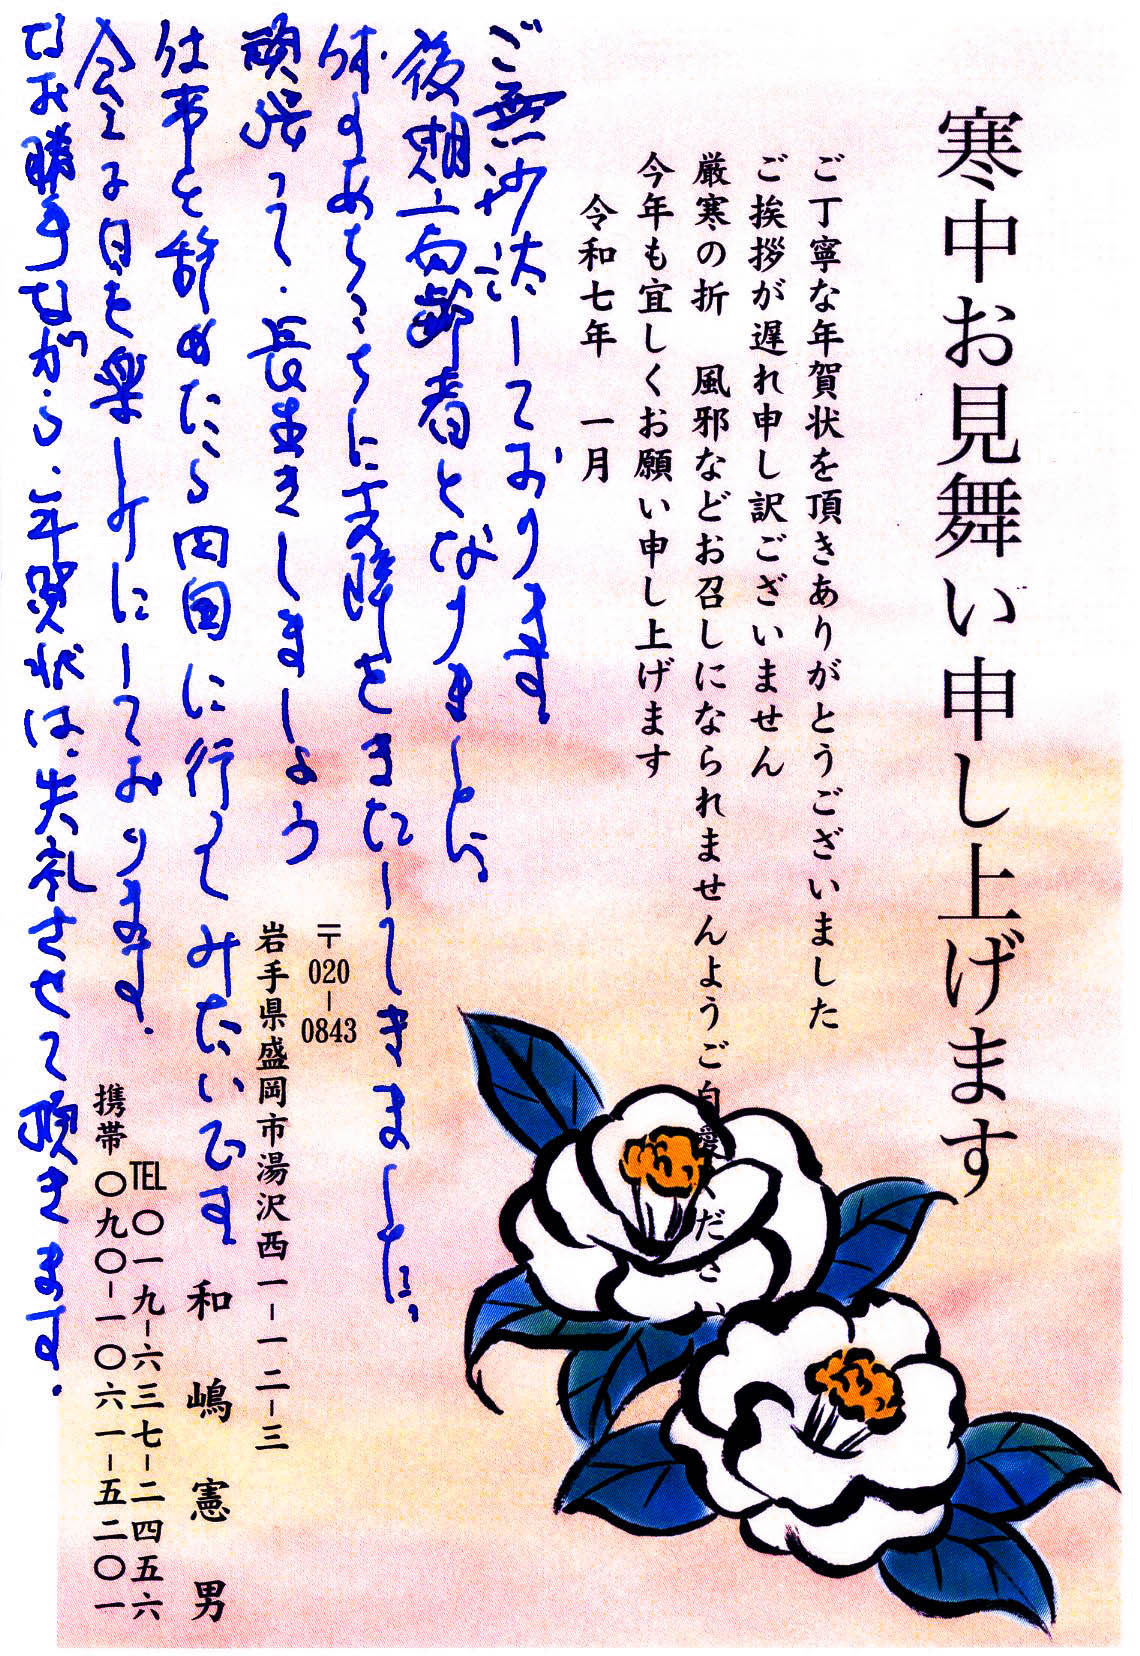 寒中お見舞い申し上げます
ご丁寧な年賀状を頂きありがとうございました
ご挨拶が遅れ申し訳ございません
厳寒の折　風邪などお召しになられませんようご自愛ください
今年も宜しくお願い申し上げます
令和七年　一月
ご無沙汰しております
後期高齢者となりましたが、
体のあちこちに支障をきたしてきました。
頑張って、長生きしましょう
仕事を辞めたら四国に行ってみたいです
会える日を楽しみにしております。
なお勝手ながら、年賀状は、失礼させて頂きます。
〒020-0843
岩手県盛岡市湯沢西一-一二-三
和嶋憲男
TEL〇一九-六三七-二四五六
携帯〇九〇-一〇六一-五二〇一